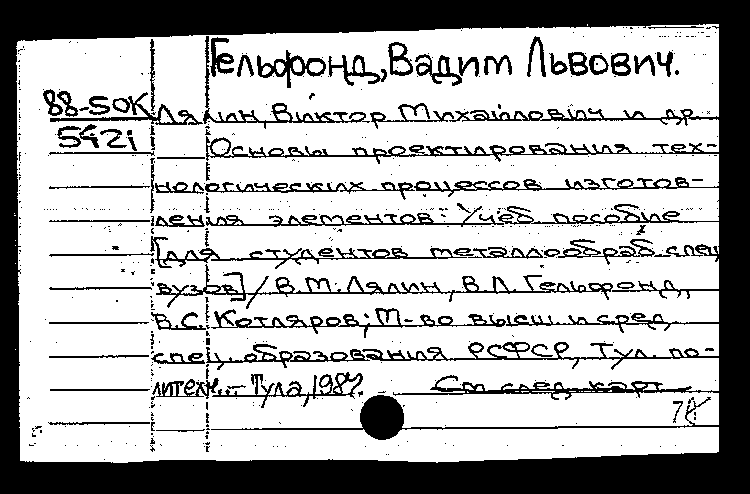 Гельфонд, Вадим Львович.
88-50К
542i
Лялин, Виктор Михайлович и др.
Основы проектирования тех-
нологических процессов изготов-
ления элементов: Учеб. пособие
[для студентов металлообраб. спец.
вузов] / В.М. Лялин, В.Л. Гельфонд,
В.С. Котляров; М-во высш. и сред.
спец. образования РСФСР, Тул. по-
литехн... Тула, 1987.
См. след. карт.